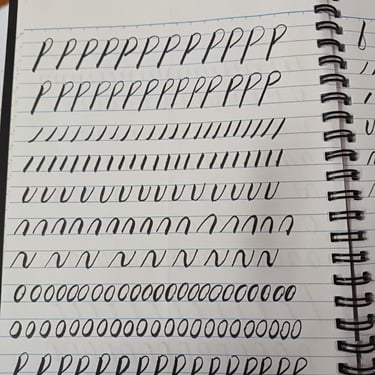 P P P P P P P P P P P P P
P P P P P P P P P P P P P P
/ / / / / / / / / / / / / / / / / / / / / /
/ / / / / / / / / / / / / / / / / / / / / / /
U U U U U U U U U U U U U U
n n n n n n n n n n n n n n
N N N N N N N N N N
0 0 0 0 0 0 0 0 0 0 0 0 0 0 0 0 0 0 0 0 0 0 0 0
0 0 0 0 0 0 0 0 0 0 0 0 0 0 0 0 0 0 0 0 0 0 0
P P P P P P P P P P P P P P